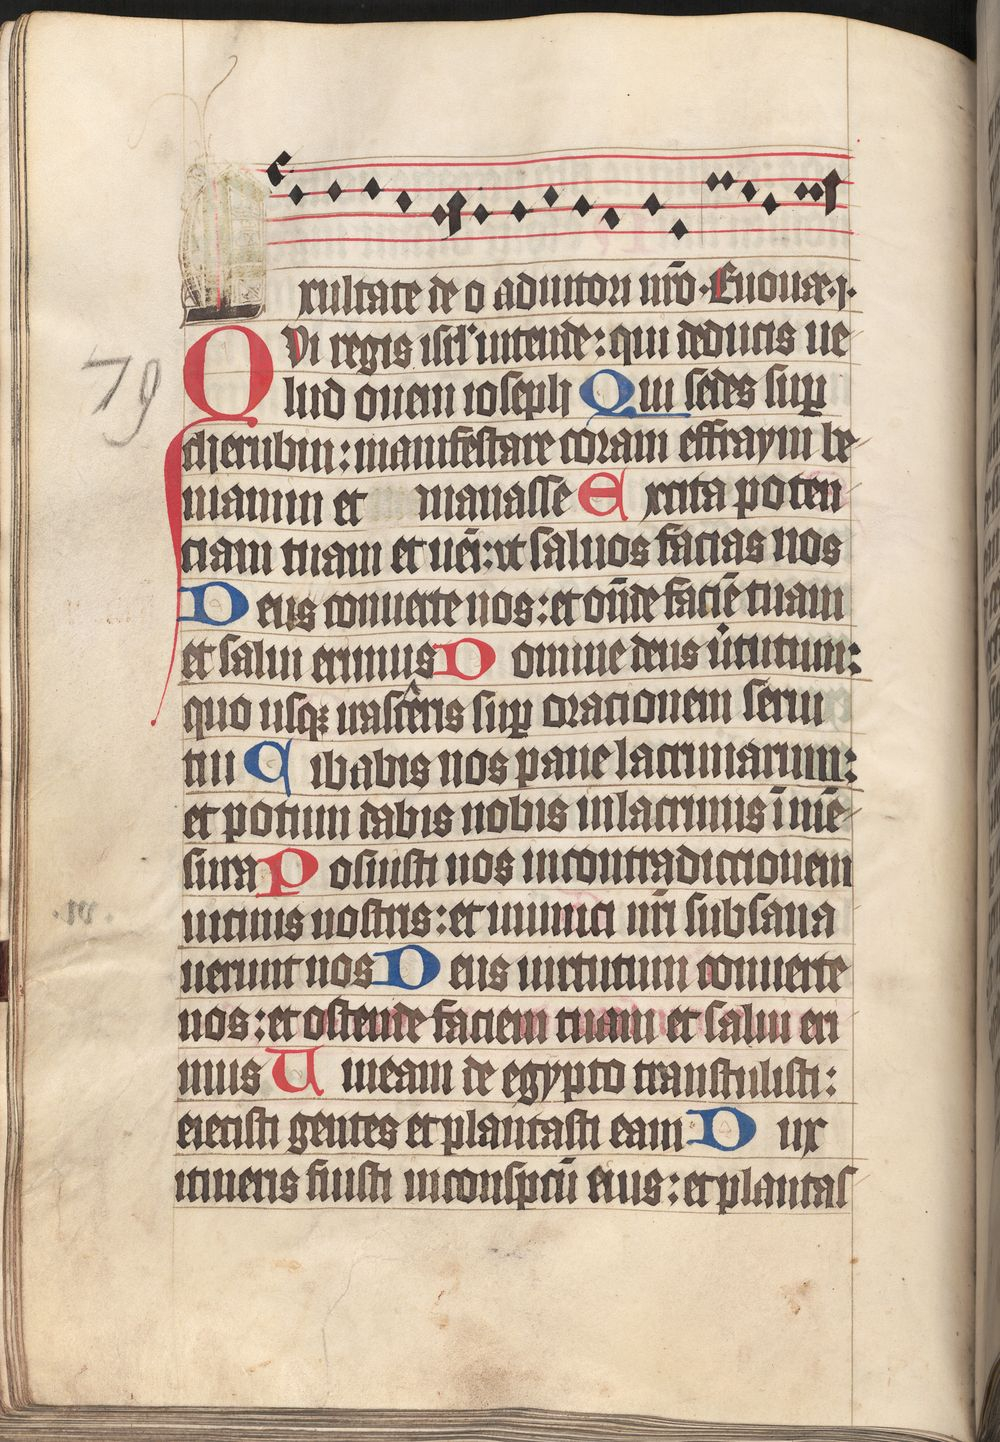 xultate de o adiutori nr̄o · Euouae · j ·
QVi regis isrl' intende : qui deducis ue
lud ouem ioseph Qui sedes sup
cherubin : manifestare coram effraym be
niamin et manasse Excita poten
ciam tuam et ueī : ut saluos facias nos
Deus conuerte nos : et on̄de faciē tuam
et salui erimus Domine deus uirtutum :
quo usq; irasceris sup orationem serui
tui Cibabis nos pane lacrimarum :
et potum dabis nobis inlacrimis ī mē
sura Posuisti nos incontradictionem
uicinis nostris : et inimici nr̄i subsanna
uerunt nos Deus uirtutum conuerte
nos : et ostende faciem tuam et salui eri
mus Uineam de egypto transtulisti :
eiecisti gentes et plantasti eam Dux
itineris fuisti inconspectū eius : et plantas
79
·m·